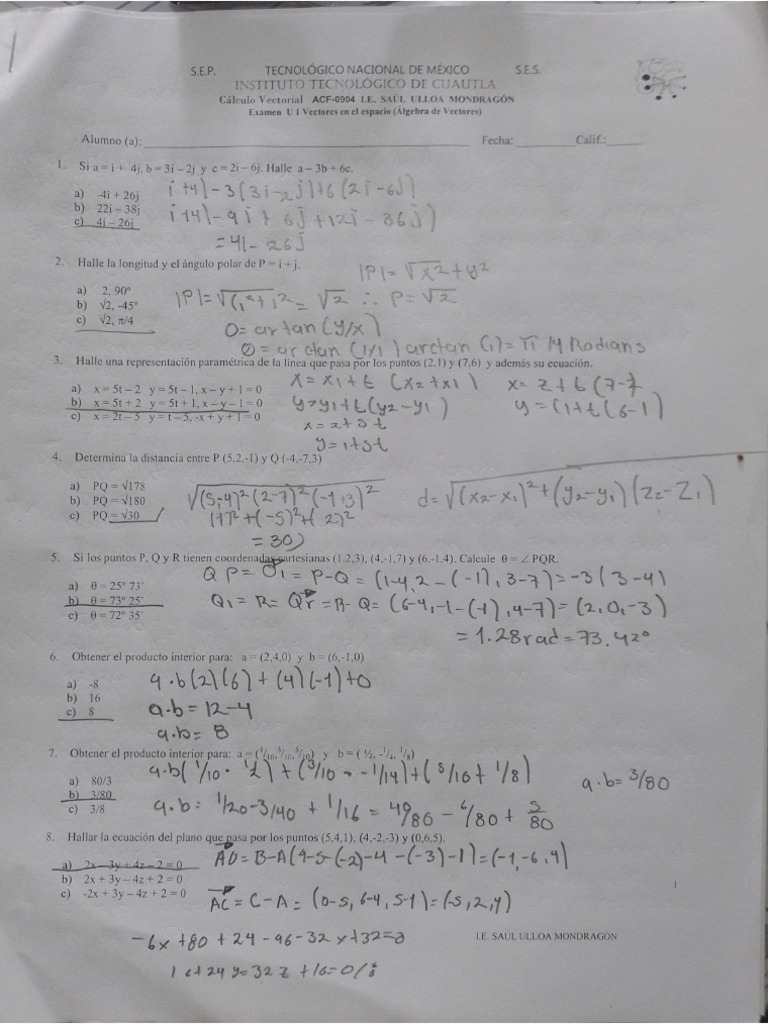 S.E.P. TECNOLÓGICO NACIONAL DE MÉXICO S.E.S.
INSTITUTO TECNOLÓGICO DE CUAUTLA
Cálculo Vectorial ACF-0904 I.E. SAÚL ULLOA MONDRAGÓN
Examen U 1 Vectores en el espacio (Álgebra de Vectores)
Alumno (a): Fecha: Calif.:
1. Si a = i + 4j, b = 3i – 2j y c = 2i – 6j. Halle a – 3b + 6c.
a) -4i + 26j i+4j-3(3i-2j)+6(2i-6j)
b) 22i – 38j i+4j-9i+6j+12i-36j)
c) 4i – 26j
=4i-26j
2. Halle la longitud y el ángulo polar de P = i + j.
|P|=√x²+y²
a) 2, 90°
b) √2, -45° |P|=√(1²+1)²=√2 ∴ P=√2
c) √2, π/4
θ=arctan(y/x)
θ=arctan(1/1) arctan(1)=π/4 Radians
3. Halle una representación paramétrica de la línea que pasa por los puntos (2,1) y (7,6) y además su ecuación.
x=x1+t(x2+x1) x=2+t(7-2
a) x = 5t – 2 y = 5t – 1, x – y + 1 = 0
b) x = 5t + 2 y = 5t + 1, x – y – 1 = 0 y=y1+t(y2-y1) y=(1+t(6-1)
c) x = 2t – 5 y = t – 5, -x + y + 1 = 0
x=2+5t
y=1+5t
4. Determina la distancia entre P (5,2,-1) y Q (-4,-7,3)
a) PQ = √178
b) PQ = √180 √(5,-4)²(2-7)²(-1+3)² d=√(x2-x1)²+(y2-y1)(z2-z1)
c) PQ = √30 (1)²+(-5)²+(2)²
=30)
5. Si los puntos P, Q y R tienen coordenadas cartesianas (1,2,3), (4,-1,7) y (6,-1,4). Calcule θ = ∠ PQR.
=P-Q=(1-4,2-(-1),3-7)=-3(3-4)
a) θ = 25° 73´
b) θ = 73° 25´ =R-Q=(6-4,-1-(-1),4-7)=(2,0,-3)
c) θ = 72° 35´
=1.28rad=73.42°
6. Obtener el producto interior para: a = (2,4,0) y b = (6,-1,0)
a) -8 a·b(2)(6)+(4)(-1)+0
b) 16
c) 8 a·b=12-4
a·b=8
7. Obtener el producto interior para: a = (1/10,3/10,5/10) y b = ( 1/2, -1/4, 1/8)
a·b(1/10·1/2)+(3/10--1/14)+(5/10+1/8) a·b=3/80
a) 80/3
b) 3/80
c) 3/8 a·b=1/20-3/40+1/16=40/80-6/80+5/80
8. Hallar la ecuación del plano que pasa por los puntos (5,4,1), (4,-2,-3) y (0,6,5).
=B-A(4-5-(-2)-4-(-3)-1)=(-1,-6,4)
a) 2x – 3y + 4z – 2 = 0
b) 2x + 3y – 4z + 2 = 0
c) -2x + 3y – 4z + 2 = 0
1
AC=C-A=(0-5,6-4,5-1)=(-5,2,4)
-6x+80+24-96-32x+32=0 I.E. SAÚL ULLOA MONDRAGÓN
24y=32z+16=0